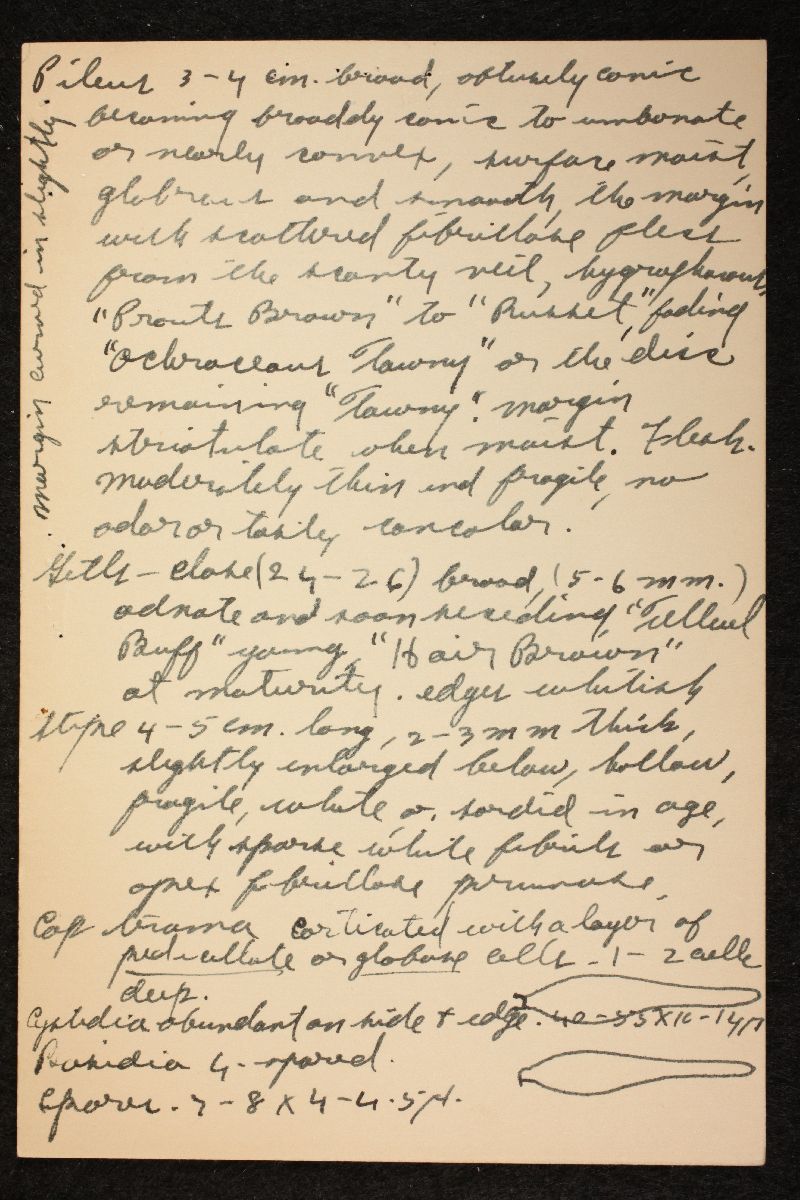 Pileus 3-4 cm. broad, obtusely conic
becoming broadly conic to umbonate
or nearly convex, surface moist,
glabrous and smooth, the margin
with scattered fibrillose flecks
from the scanty veil, hygrophanous,
"Prouts Brown" to "Russet," fading
"Ochraceous Tawny" or the disc
remaining "Tawny". margin
striatulate when moist. Flesh.
moderately thin and fragile, no
odor or taste, concolor.
Gills - close (24-26) broad, (5-6 mm.)
adnate and soon seceding, "Tilleul
Buff" young, "Hair Brown"
at maturity. edges whitish
Stipe 4-5 cm. long, 2-3 mm thick,
slightly enlarged below, hollow,
fragile, white or sordid in age,
with sparse white fibrils or
apex fibrillose pruinose.
Cap trama corticated with a layer of
pedicellate or globose cells - 1-2 cells
deep.
Cystidia abundant on side + edge. 40-55 X 11-14 µ
Basidia 4-spored.
Spores. 7-8 X 4-4.5 µ.
margin curved in slightly.